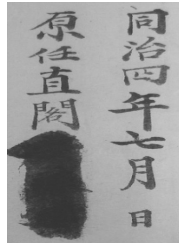 同治四年七月日
原任直閣